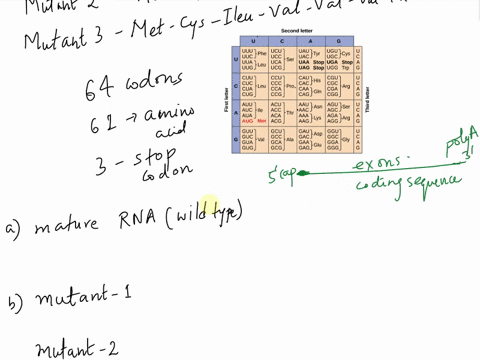 Mutant 2
Mutant 3 - Met - Cys - Ileu - Val - Val - Val
64 codons
61 → amino acid
3 - stop codon
Second letter
U C A G
First letter
Third letter
U
UUU UUC Phe
UUA UUG Leu
UCU UCC UCA UCG Ser
UAU UAC Tyr
UAA Stop
UAG Stop
UGU UGC Cys
UGA Stop
UGG Trp
U C A G
C
CUU CUC CUA CUG Leu
CCU CCC CCA CCG Pro
CAU CAC His
CAA CAG Gln
CGU CGC CGA CGG Arg
U C A G
A
AUU AUC AUA Ile
AUG Met
ACU ACC ACA ACG Thr
AAU AAC Asn
AAA AAG Lys
AGU AGC Ser
AGA AGG Arg
U C A G
G
GUU GUC GUA GUG Val
GCU GCC GCA GCG Ala
GAU GAC Asp
GAA GAG Glu
GGU GGC GGA GGG Gly
U C A G
5'cap
exons.
coding sequence
polyA
3'
a) mature RNA (wild type)
b) mutant-1
mutant-2